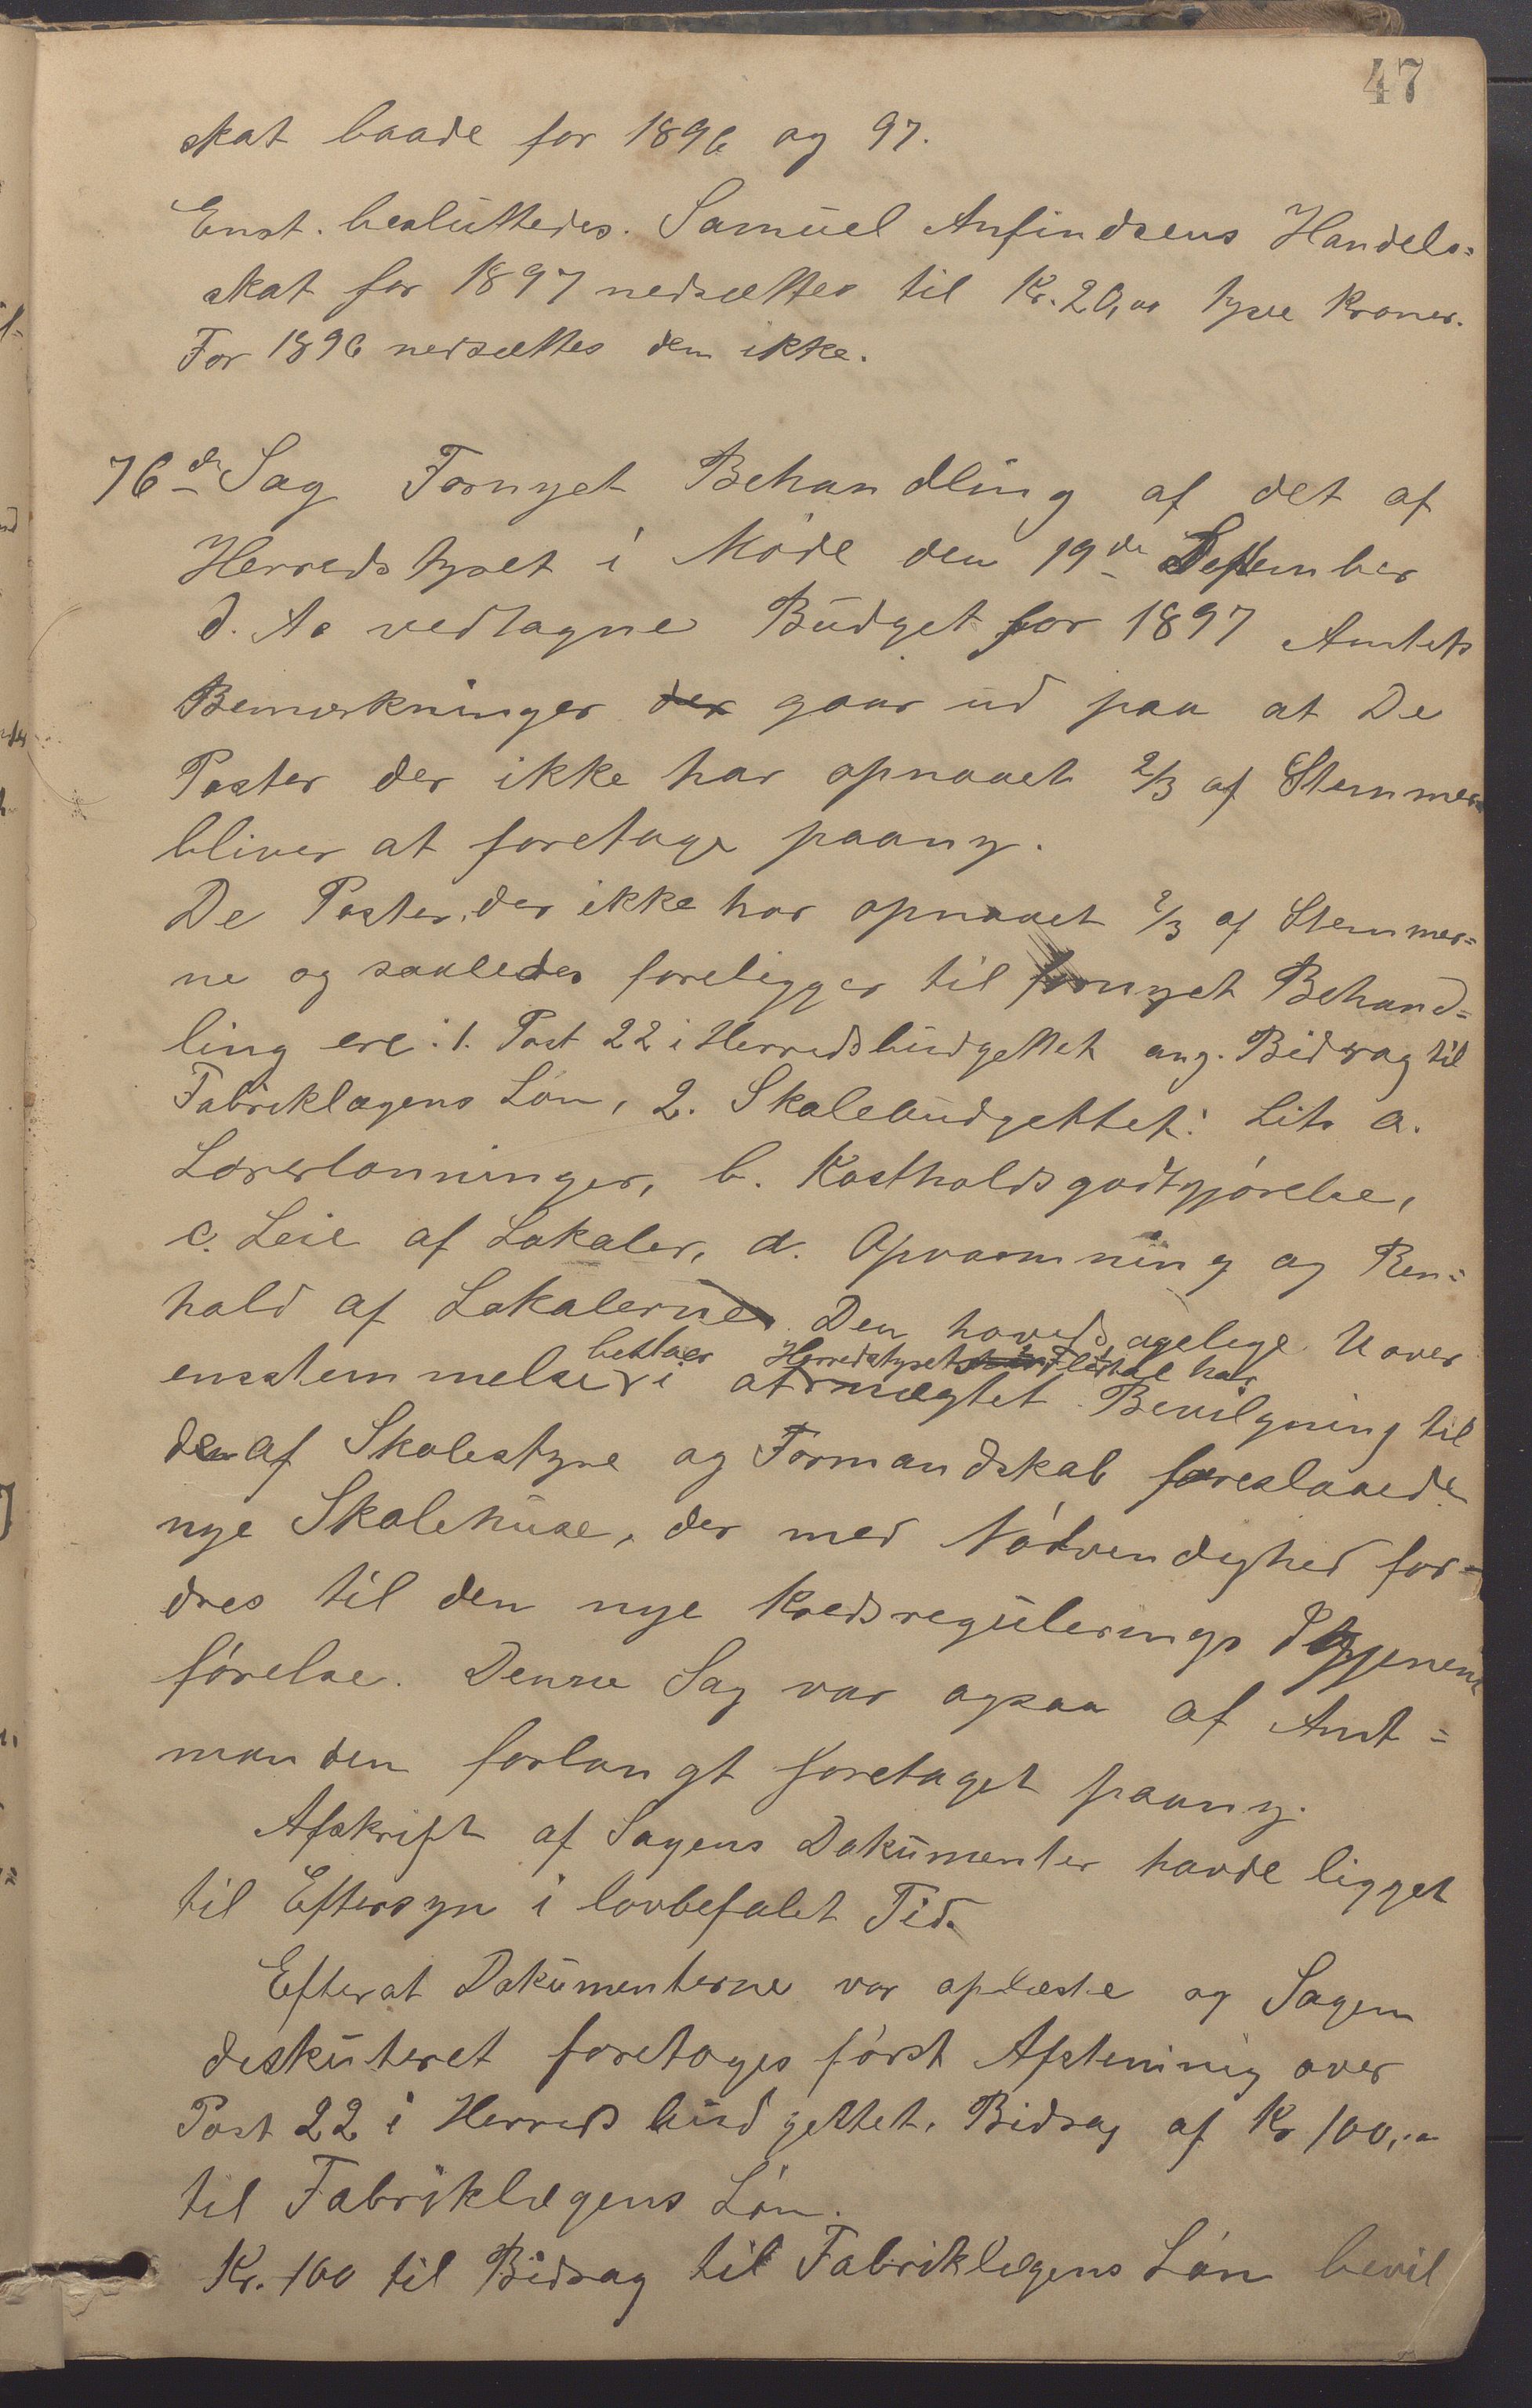 47
skat baade for 1896 og 97.
Enst. besluttedes. Samuel Anfindsens Handels=
skat for 1897 nedsættes til Kr. 20,00 tyve Kroner.
For 1896 nedsættes den ikke.
76de Sag Fornyet Behandling af det af
Herredstyret i Møde den 19de September
d. A. vedtagne Budget for 1897 Amtets
Bemærkninger der gaar ud paa at De
Poster der ikke har opnaaet 2/3 af Stemmer
bliver at foretage paany.
De Poster, der ikke har opnaaet 2/3 af Stemmer=
ne og saaledes foreligger til fornyet Behand=
ling ere: 1. Post 22 i Herredsbudgettet ang. Bidrag til
Fabriklægens Løn, 2. Skolebudgettet: Lit. a.
Lærerlønninger, b. Kostholdsgodtgjørelse,
c. Leie af Lokaler, d. Opvarmning og Ren=
hold af Lokalerne. Den hovedsagelige Uover
bestaar Herredstyrets Flertal har
ensstemmelse i at nægtet Bevilgning til
den af Skolestyre og Formandskab foreslaaede
nye Skolehuse, der med Nødvendighed for=
dres til den nye Kredsregulerings Igjennem
førelse. Denne Sag var ogsaa af Amt=
manden forlangt foretaget paany.
Afskrift af Sagens Dokumenter havde ligget
til Eftersyn i lovbefalet Tid.
Efterat Dokumenterne var oplæste og Sagen
diskuteret foretoges først Afstemnig over
Post 22 i Herredsbudgettet, Bidrag af Kr 100,00
til Fabriklægens Løn.
Kr. 100 til Bidrag til Fabriklægens Løn bevil